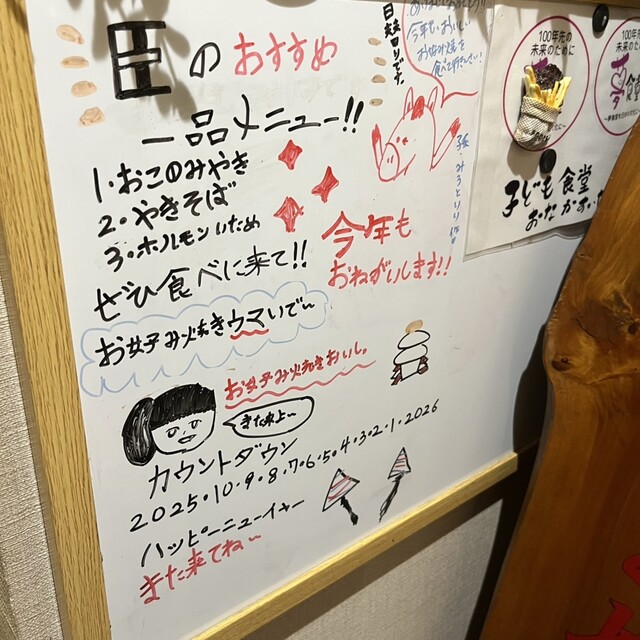 臣のおすすめ
一品メニュー!!
1・おこのみやき
2・やきそば
3・ホルモンいため
ぜひ食べに来て!!
今年も
おねがいします!!
お好み焼きウマいで〜
お好み焼きおいし。
また来よ〜
カウントダウン
2025・10・9・8・7・6・5・4・3・2・1・2026
ハッピーニューイャー
また来てね〜
今年も、おいしい
お好み焼を
食べて下さい!
100年先の
未来のために
100年先の
未来のために
子ども食堂